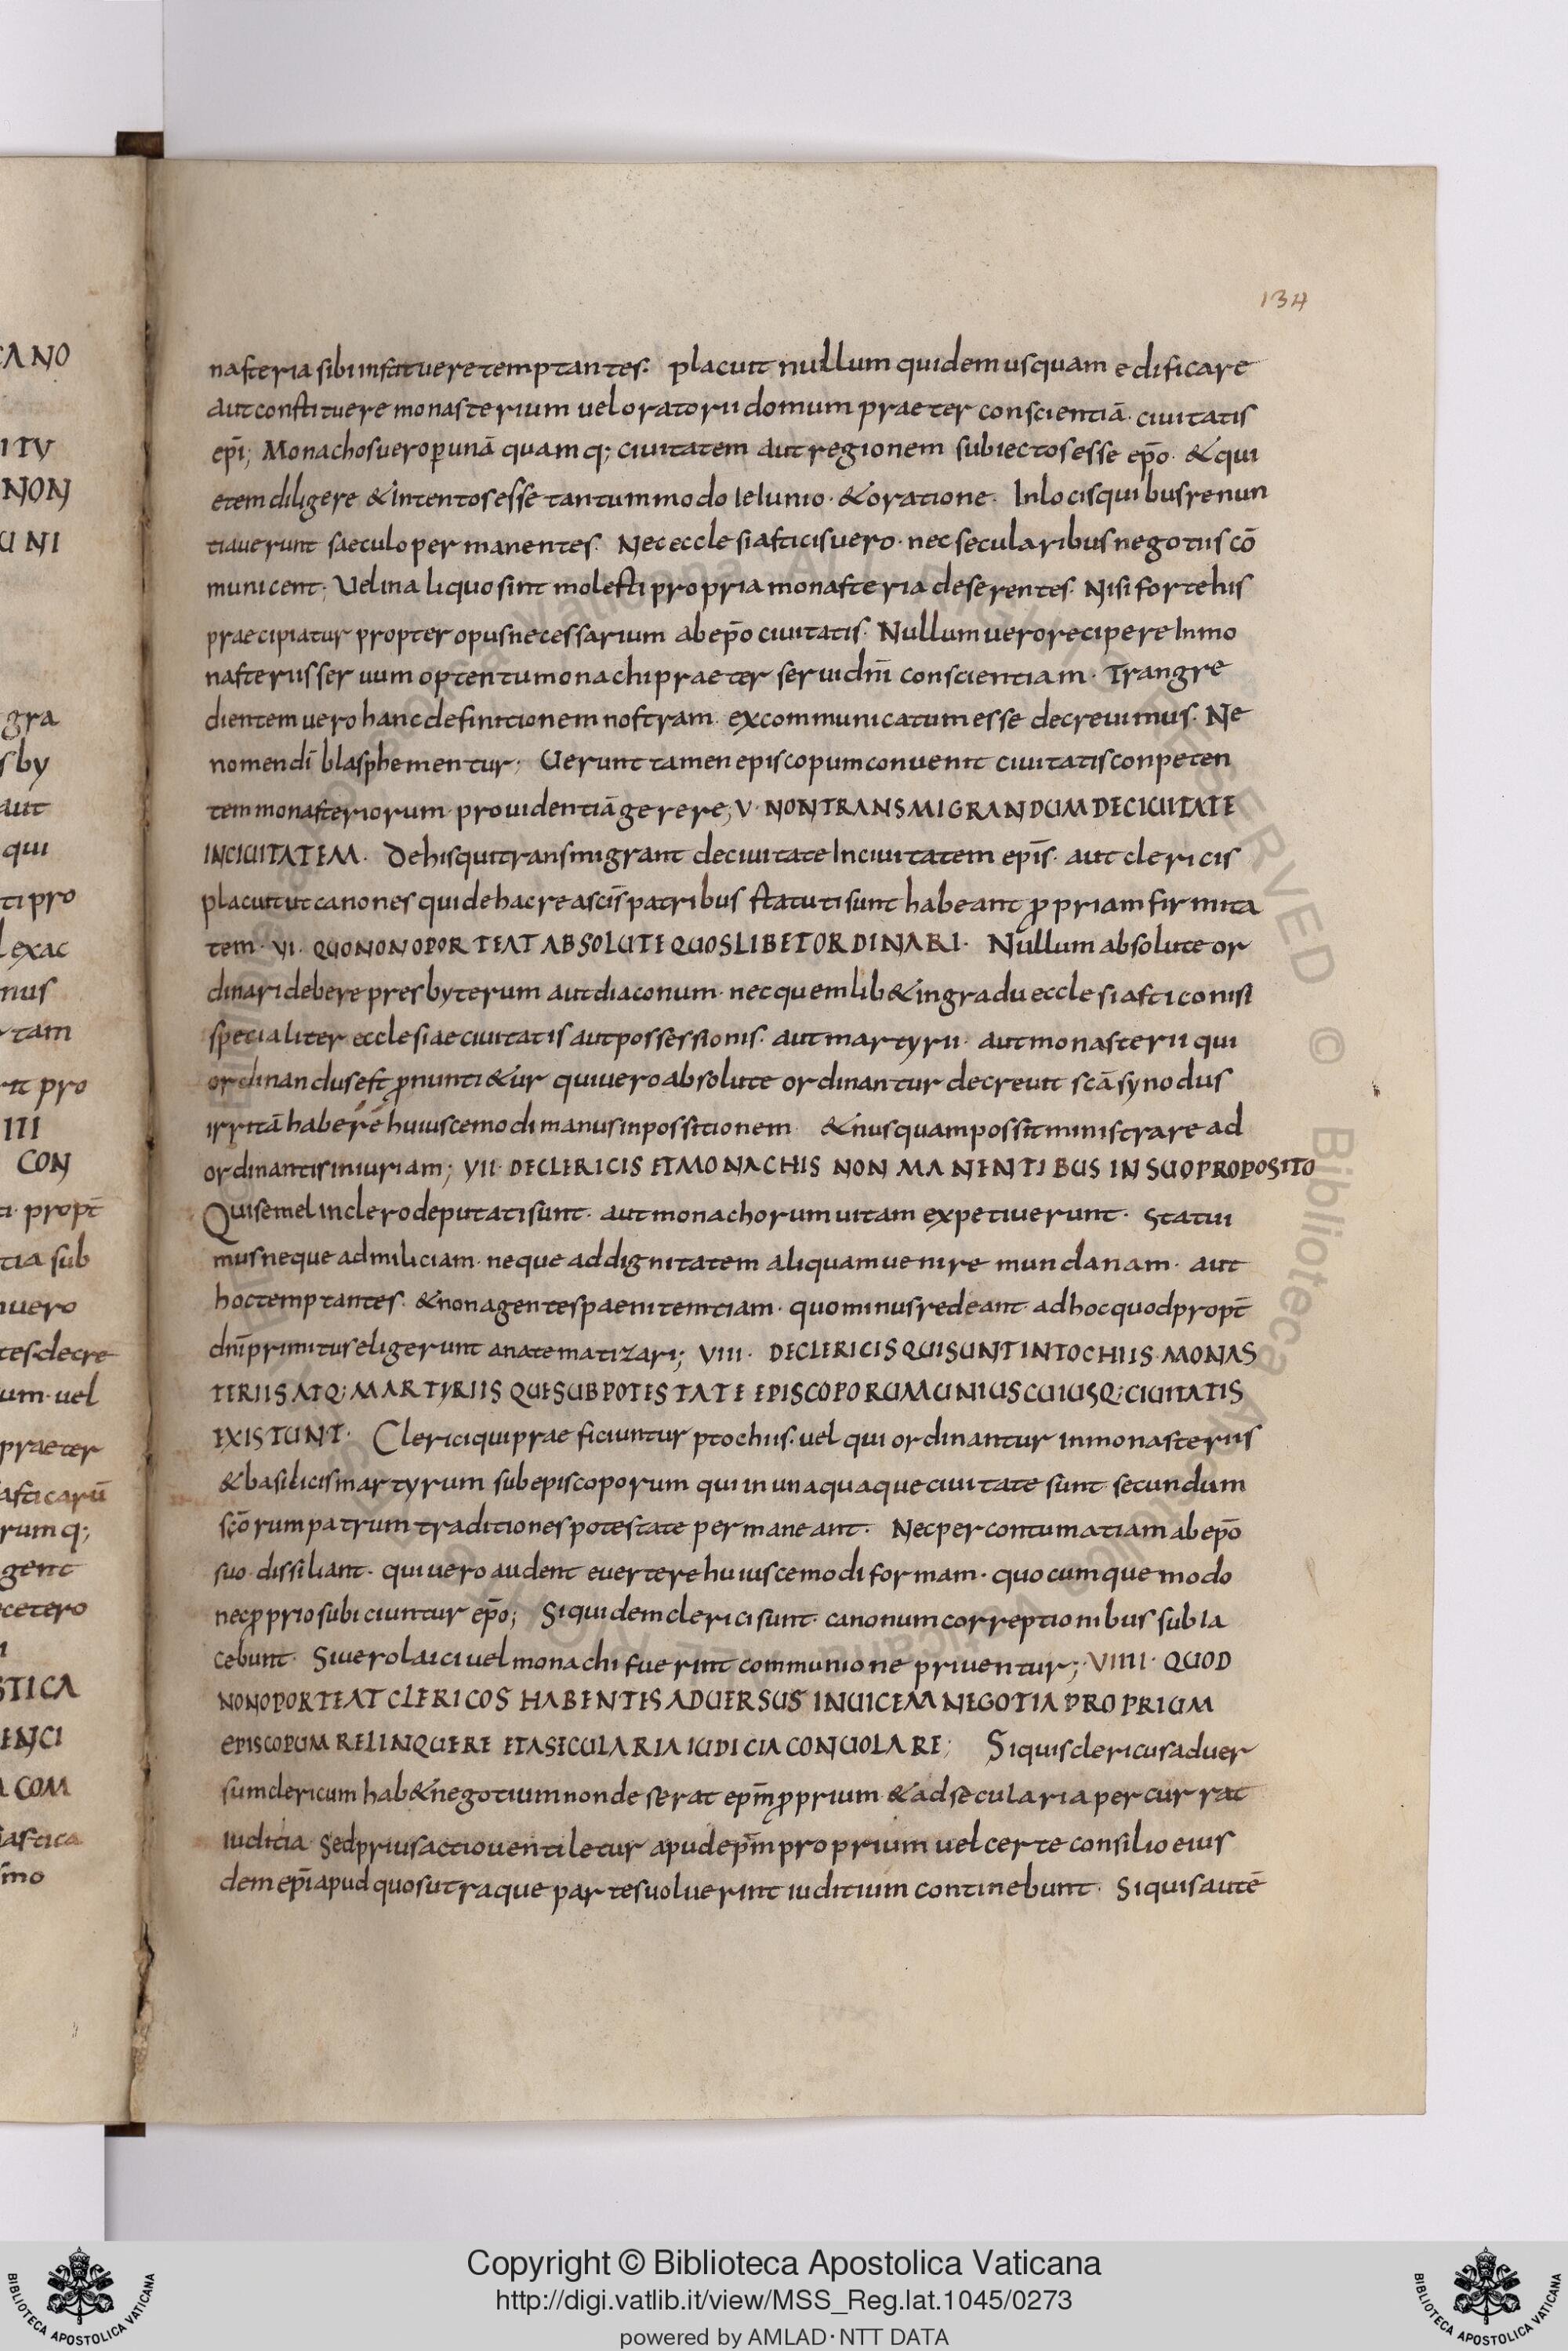 134
nasteria sibi instituere temptantes. placuit nullum quidem usquam edificare
aut constituere monasterium uel oratorii domum praeter conscientiā. ciuitatis
ep̄i; Monachos uero p̱ unā quamq; ciuitatem aut regionem subiectos esse ep̄o. & qui
etem diligere & intentos esse tantummodo Ieiunio. & oratione. In locis quibus renun
tiauerunt saeculo permanentes. Nec ecclesiasticis uero. nec secularibus negotiis cō
municent; Uel in aliquo sint molesti propria monasteria deserentes. Nisi forte his
praecipiatur propter opus necessarium ab ep̄o ciuitatis. Nullum uero recipere In mo
nasteriis seruum optentu monachi praeter serui dn̄i conscientiam. Trangre
dientem uero hanc definitionem nostram. excommunicatum esse decreuimus. Ne
nomen dī blasphementur; Uerunt tamen episcopum conuenit ciuitatis conpeten
tem monasteriorum prouidentiā gerere; V. NON TRANSMIGRANDUM DE CIUITATE
IN CIUITATEM. De his qui transmigrant de ciuitate In ciuitatem ep̄is. aut clericis
placuit ut canones qui de hac re a sc̄is patribus statuti sunt habeant ꝓpriam firmita
tem. VI. QUO NON OPORTEAT ABSOLUTE QUOSLIBET ORDINARI. Nullum absolute or
dinari debere presbyterum aut diaconum. nec quemlib& in gradu ecclesiastico nisi
specialiter ecclesiae ciuitatis aut possessionis. aut martyrii. aut monasterii qui
ordinandus est ꝓnunti&ur qui uero absolute ordinantur decreuit sc̄a synodus
irritā habere huiuscemodi manus inpossitionem & nusquam possit ministrare ad
ordinantis iniuriam; VII. DE CLERICIS ET MONACHIS NON MANENTIBUS IN SUO PROPOSITO
Qui semel in clero deputati sunt. aut monachorum uitam expetiuerunt. Statui
mus neque ad miliciam. neque ad dignitatem aliquam uenire mundanam. aut
hoc temptantes. & non agentes paenitemtiam. quominus redeant ad hoc quod propt̄
dn̄i primitus eligerunt anatematizari; VIII. DE CLERICIS QUI SUNT IN TOCHIIS MONAS
TERIIS ATQ; MARTYRIIS QUE SUB POTESTATE EPISCOPORUM UNIUSCUIUSQ; CIUITATIS
EXISTUNT. Clerici qui praeficiuntur ptochiis. uel qui ordinantur in monasteriis
& basilicis martyrum sub episcoporum qui in unaquaque ciuitate sunt secundum
sc̄orum patrum traditiones potestate permaneant. Nec per contumatiam ab ep̄o
suo dissiliant. qui uero audent euertere huiuscemodi formam. quocumque modo
nec ꝓprio subiciuntur ep̄o; Siquidem clerici sunt. canonum correptionibus subia
cebunt. Si uero laici uel monachi fuerint communione priuentur; VIIII. QUOD
NON OPORTEAT CLERICOS HABENTES ADUERSUS INUICEM NEGOTIA PROPRIUM
EPISCOPUM RELINQUERE ET A SECULARIA IUDICIA CONUOLARE; Si quis clericus aduer
sum clericum hab& negotium non deserat ep̄m ꝓprium & ad secularia percurrat
iuditia Sed prius actio uentiletur apud ep̄m proprium uel certe consilio eius
dem ep̄i apud quos utraque partes uoluerint iuditium continebunt. Si quis autē
Copyright © Biblioteca Apostolica Vaticana
http://digi.vatlib.it/view/MSS_Reg.lat.1045/0273
powered by AMLAD·NTT DATA